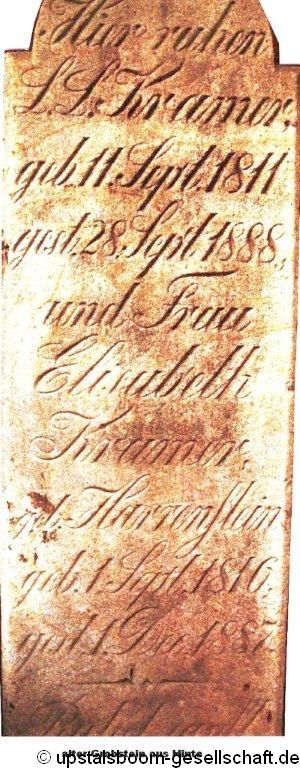 Hier ruhen
L. L. Kramer,
geb. 11. Sept. 1811
gest. 28. Sept. 1888,
und Frau
Elisabeth
Kramer,
geb. Harrenstein
geb. 1. Sept. 1816,
gest. 1. Dec. 1887.
alter Grabstein aus Hinte
© upstalsboom-gesellschaft.de